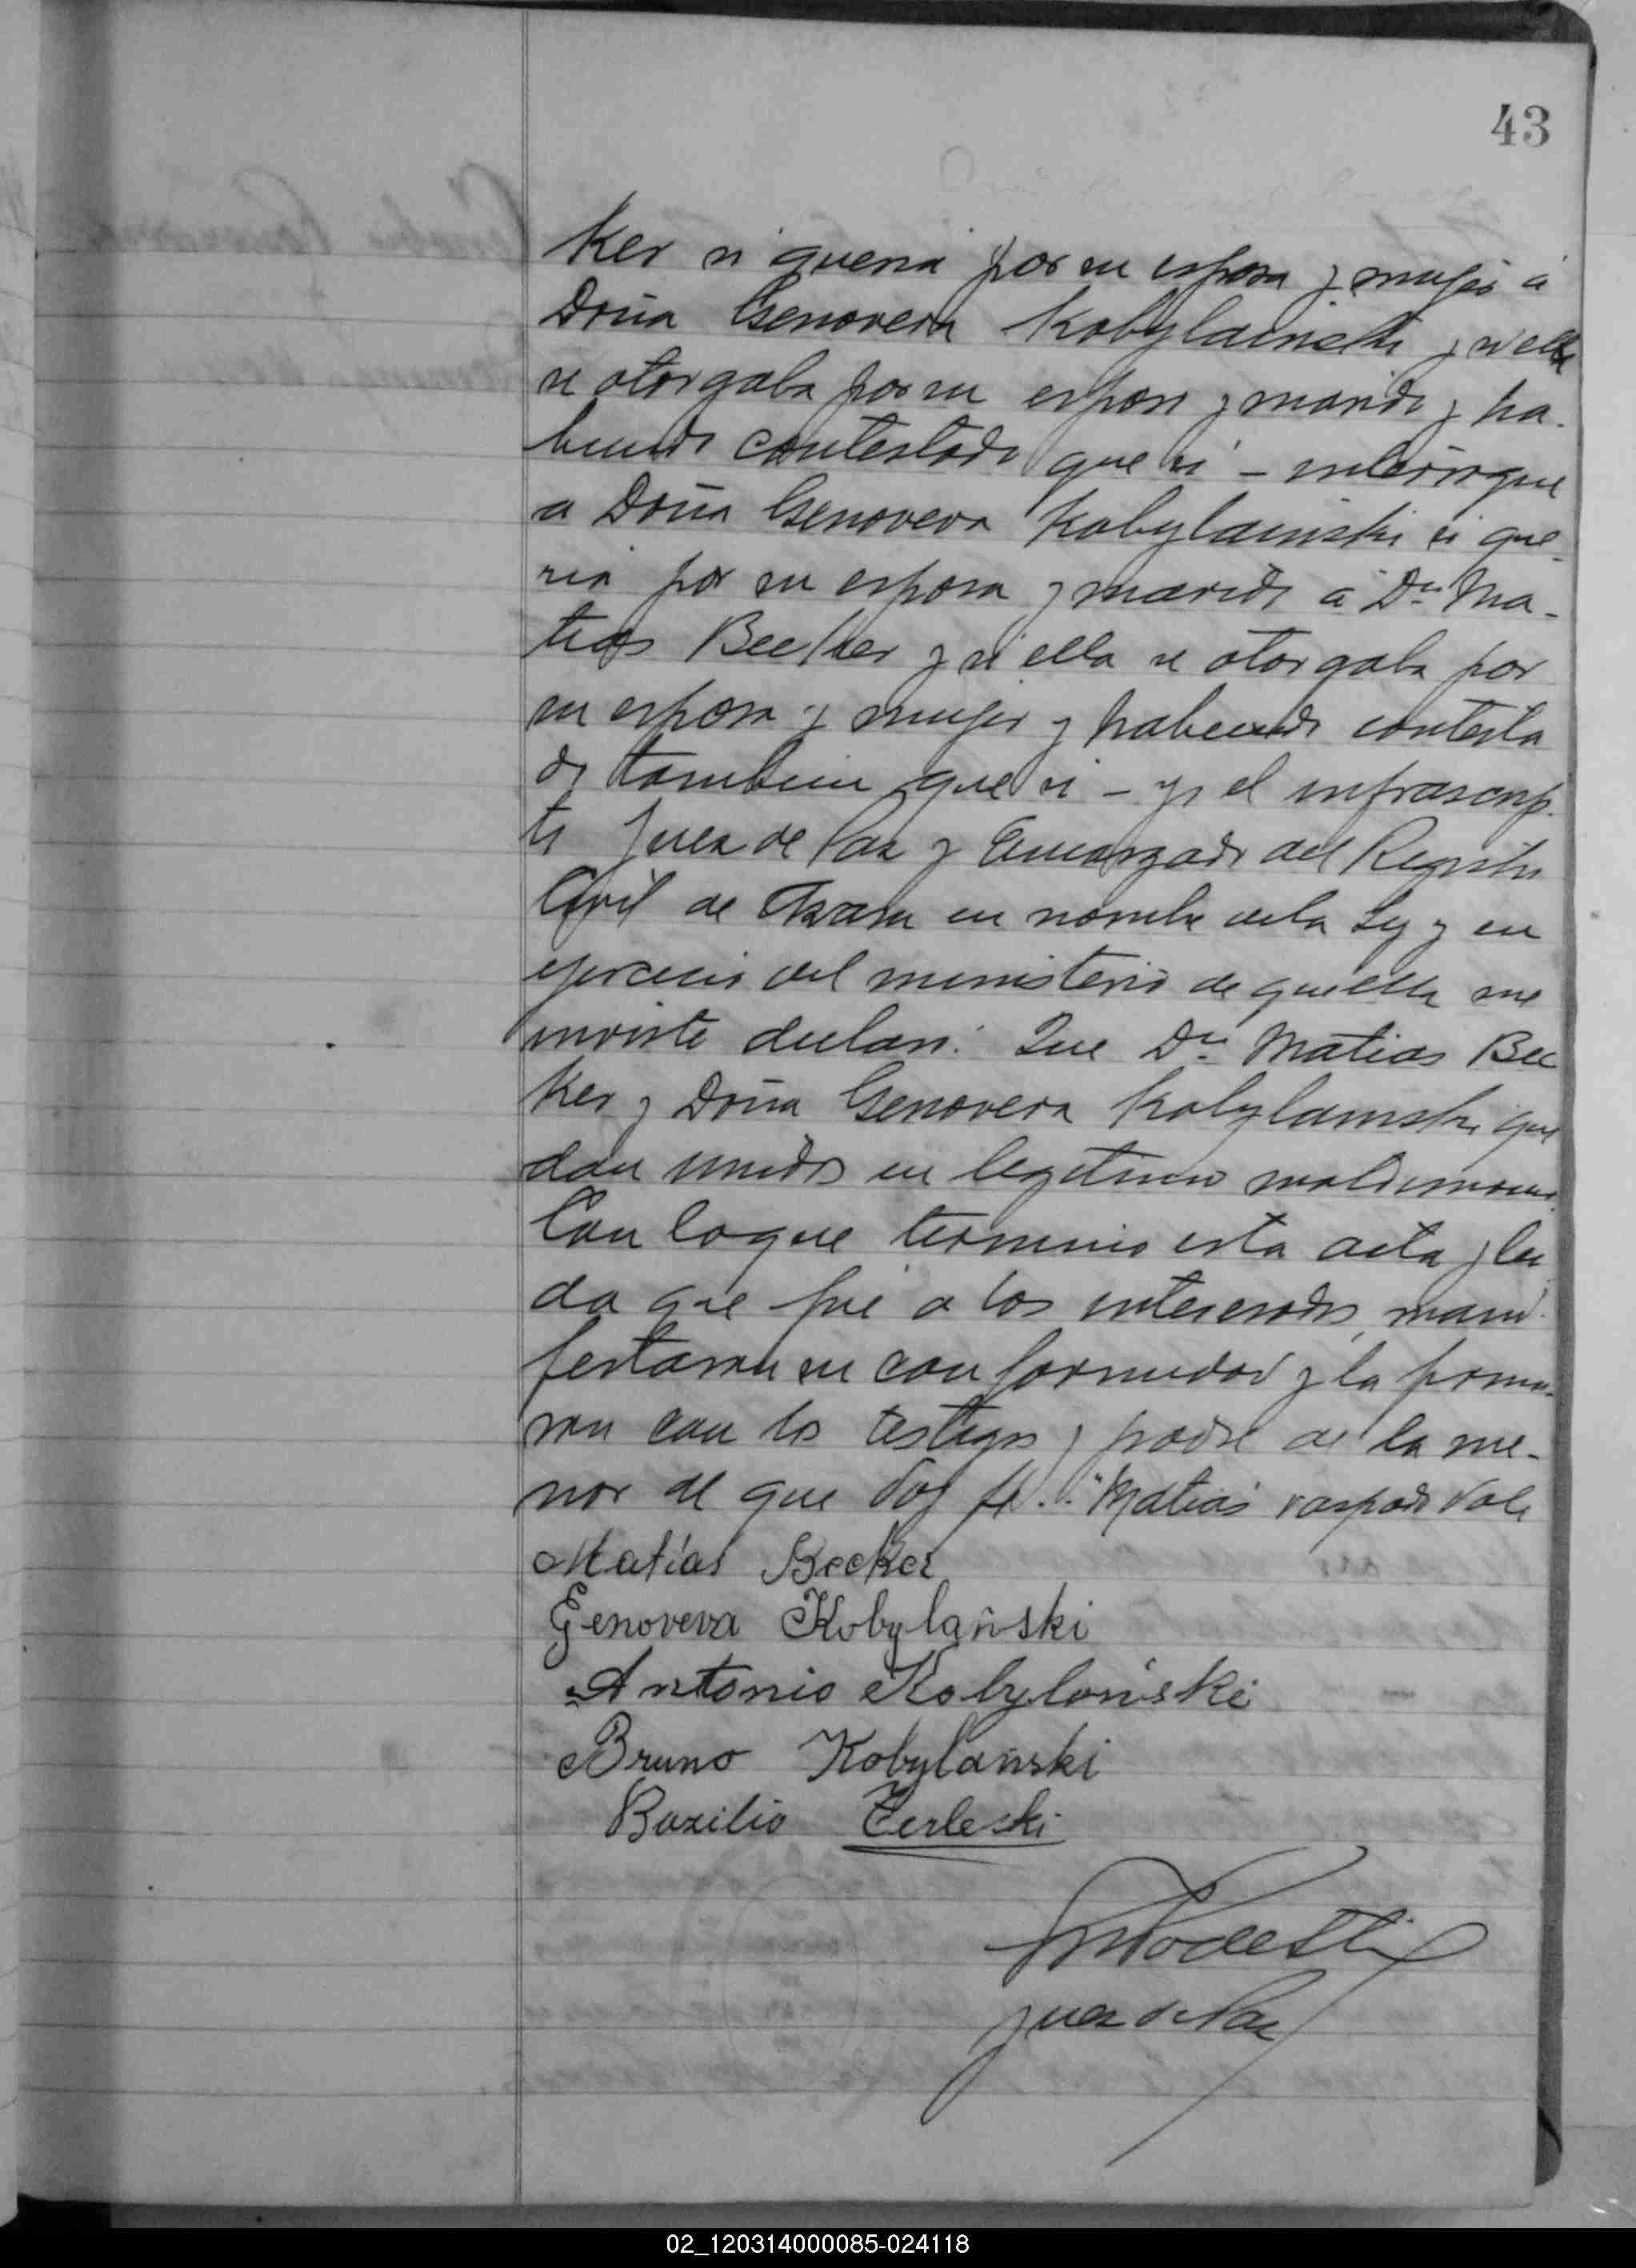 43
ker si queria por su esposa y mujer á
Doña Genoveva Kobylainski y si ella
se otorgaba por su esposo y marido y ha-
biendo contestado que si – interrogue
a Doña Genoveva Kobylainski si que-
ria por su esposo y marido á Dn Ma-
tias Becker y si ella se otorgaba por
su esposa y mujer y habiendo contesta
do tambien que si – yo el infrascrip-
to Juez de Paz y Encargado del Registro
Civil de Azara en nombre de la Ley y en
ejercicio del ministerio de que ella me
inviste declaro: Que Dn Matias Bec
ker y Doña Genoveva Kobylainski que
dan unidos en legitimo matrimonio.
Con lo que termino esta acta y lei
da que fué a los interesados, mani-
festaron su conformidad y la firma-
ron con los testigos y padre de la me-
nor de que doy fé.. "Matias" raspado Vale
Matías Becker
Genoveva Kobylański
Antonio Kobylański
Bruno Kobylański
Bazilio Terleski
Podestá
Juez de Paz
02_120314000085-024118